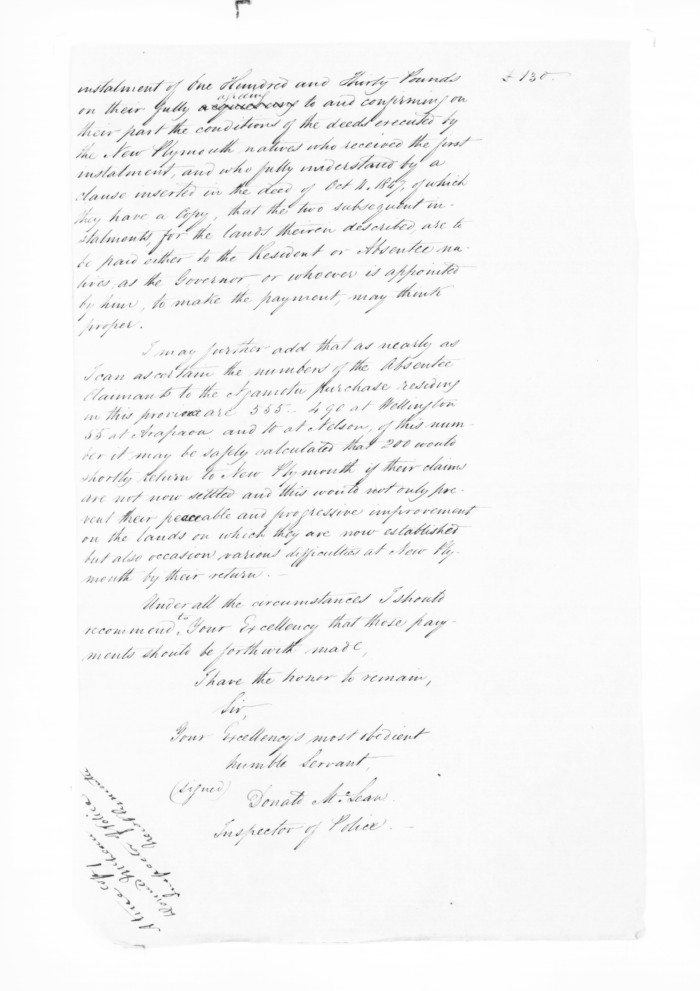 instalment of One Hundred and Thirty Pounds £ 130.
on their fully acquiescing agreeing to and confirming on
their part the conditions of the deeds executed by
the New Plymouth natives who received the first
instalment, and who fully understand by a
clause inserted in the deed of Oct 11. 1847, of which
they have a Copy, that the two subsequent in-
stalments, for the lands therein described, are to
be paid either to the Resident or Absentee na-
tives, as the Governor, or whoever is appointed
by him, to make the payment, may think
proper.
I may further add that as nearly as
I can ascertain the numbers of the Absentee
Claimants to the Ngamotu purchase residing
in this province are 555 - 490 at Wellington
55 at Arapaoa and 10 at Nelson, of this num-
ber it may be safely calculated that 200 would
shortly return to New Plymouth if their claims
are not now settled and this would not only pre-
vent their peaceable and progressive improvement
on the lands on which they are now established
but also occasion various difficulties at New Ply-
mouth by their return. -
Under all the circumstances I should
recommend to Your Excellency that these pay-
ments should be forthwith made,
I have the honor to remain,
Sir,
Your Excellency's most obedient
humble Servant,
(signed)
Donald McLean
Inspector of Police. -
A true copy
Donald McLean
Inspector of Police
New Plymouth